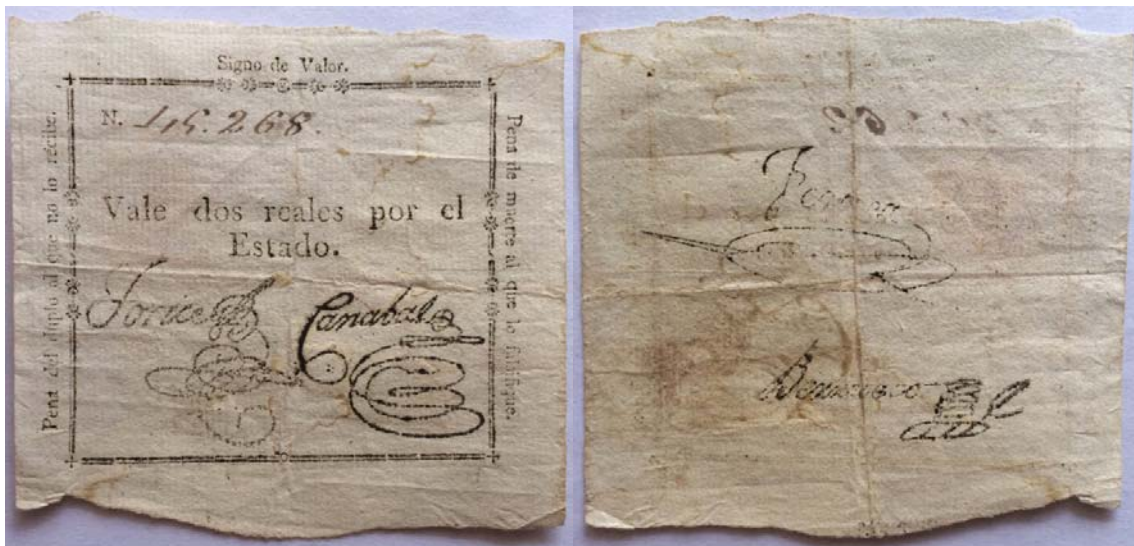 Signo de Valor.
N. 145.268.
Vale dos reales por el
Estado.
Canabál
Pena del duplo al que no lo recibe.
Pena de muerte al que lo falsifique.